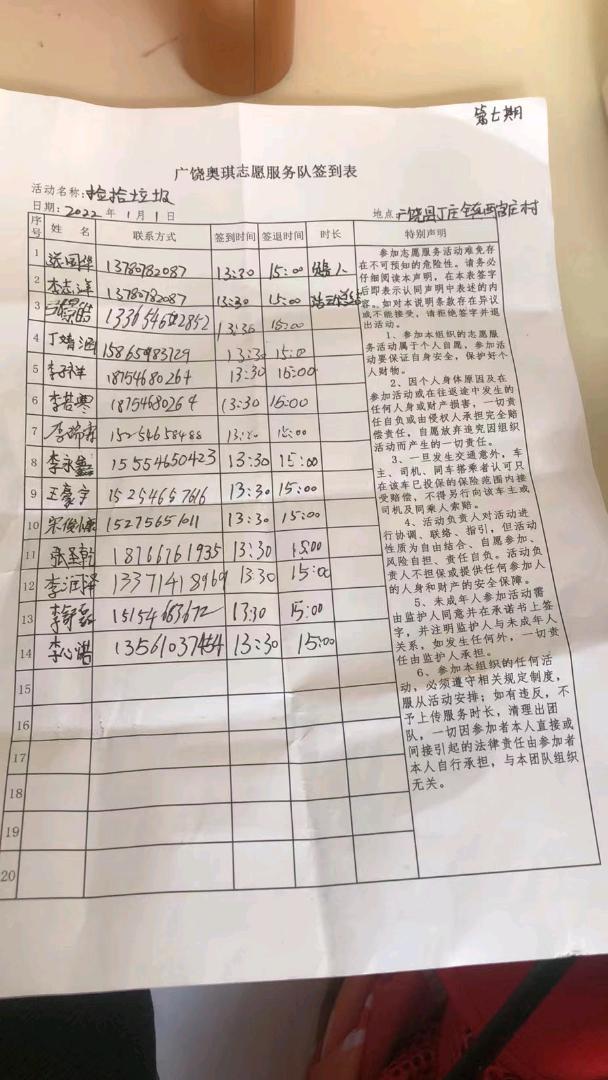 第七期
广饶奥琪志愿服务队签到表
活动名称：捡拾垃圾
日期：2022年1月1日
地点：广饶县丁庄镇西宫庄村
序号 姓名 联系方式 签到时间 签退时间 时长 特别声明
1 张国华 13780782087 13:30 15:00
2 李志洋 13780782087 13:30 15:00
3 13:30 15:00
4 丁靖涵 15865983729 13:30 15:00
5 李子洋 18754680264 13:30 15:00
6 李若寒 18754680264 13:30 15:00
7 李瑞霖 15254658488 13:30 15:00
8 李永鑫 15554650423 13:30 15:00
9 王豪宇 15254657616 13:30 15:00
10 宋俊 15275651011 13:30 15:00
11 张圣乾 18766761935 13:30 15:00
12 李润泽 13371418969 13:30 15:00
13 15154653672 13:30 15:00
14 李心诺 13561037454 13:30 15:00
15
16
17
18
19
20
参加志愿服务活动难免存
在不可预知的危险性。请务必
仔细阅读本声明，在本表签字
后即表示认同声明中表述的内
容。如对本说明条款存在异议
或不能接受，请拒绝签字并退
出活动。
1、参加本组织的志愿服
务活动属于个人自愿，参加活
动要保证自身安全，保护好个
人财物。
2、因个人身体原因及在
参加活动或在往返途中发生的
任何人身或财产损害，一切责
任自负或由侵权人承担完全赔
偿责任，自愿放弃追究因组织
活动而产生的一切责任。
3、一旦发生交通意外，车
主、司机、同车搭乘者认可只
在该车已投保的保险范围内接
受赔偿，不得另行向该车主或
司机及同乘人索赔。
4、活动负责人对活动进
行协调、联络、指引，但活动
性质为自由结合、自愿参加、
风险自担、责任自负。活动负
责人不担保或提供任何参加人
的人身和财产的安全保障。
5、未成年人参加活动需
由监护人同意并在承诺书上签
字，并注明监护人与未成年人
关系，如发生任何外，一切责
任由监护人承担。
6、参加本组织的任何活
动，必须遵守相关规定制度，
服从活动安排；如有违反，不
予上传服务时长，清理出团
队，一切因参加者本人直接或
间接引起的法律责任由参加者
本人自行承担，与本团队组织
无关。